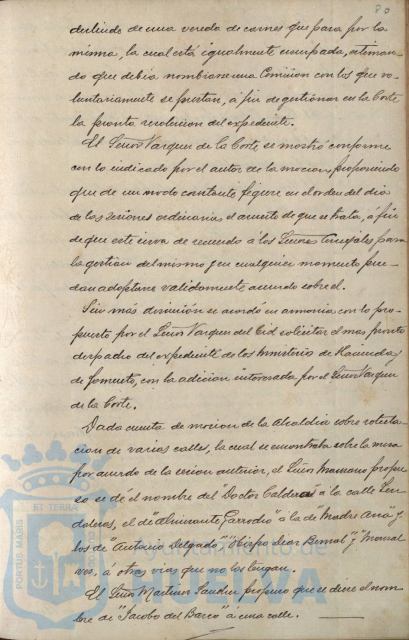 80
deslinde de una vereda de carnes que pasa por la
misma, la cual está igualmente ocupada, estiman-
do que debía nombrarse una Comision con los que vo-
luntariamente se prestan, á fin de gestionar en la Corte
la pronta resolucion del expediente.
El Señor Vazquez de la Corte se mostró conforme
con lo indicado por el autor de la mocion, proponiendo
que de un modo constante figure en el orden del dia
de las sesiones ordinarias el asunto de que se trata, á fin
de que este sirva de recuerdo á los Señores Concejales para
la gestion del mismo y en cualquier momento pue-
dan adoptarse validamente acuerdo sobre el.
Sin más discusion se acordó en armonia con lo pro-
puesto por el Señor Vazquez del Cid solicitar el mas pronto
despacho del expediente de los Ministerios de Hacienda y
de Fomento, con la adicion interesada por el Señor Vazquez
de la Corte.
Dada cuenta de mocion de la Alcaldia sobre rotula-
cion de varias calles, la cual se encontraba sobre la mesa
por acuerdo de la sesion anterior, el Señor propu-
so se dé el nombre del "Doctor á la calle Sen-
daleras, el de "Almirante Garrocho" á la de "Madre Ana" y
los de "Antonio Delgado" "Hispo Bernal" y
á otras vias que no los tengan.
El Señor Martinez Sanchez propuso que se diese el nom-
bre de "Jacobo del Barco" á una calle.
PORTUS MARIS
ET TERRAE
Ayuntamiento de
HUELVA